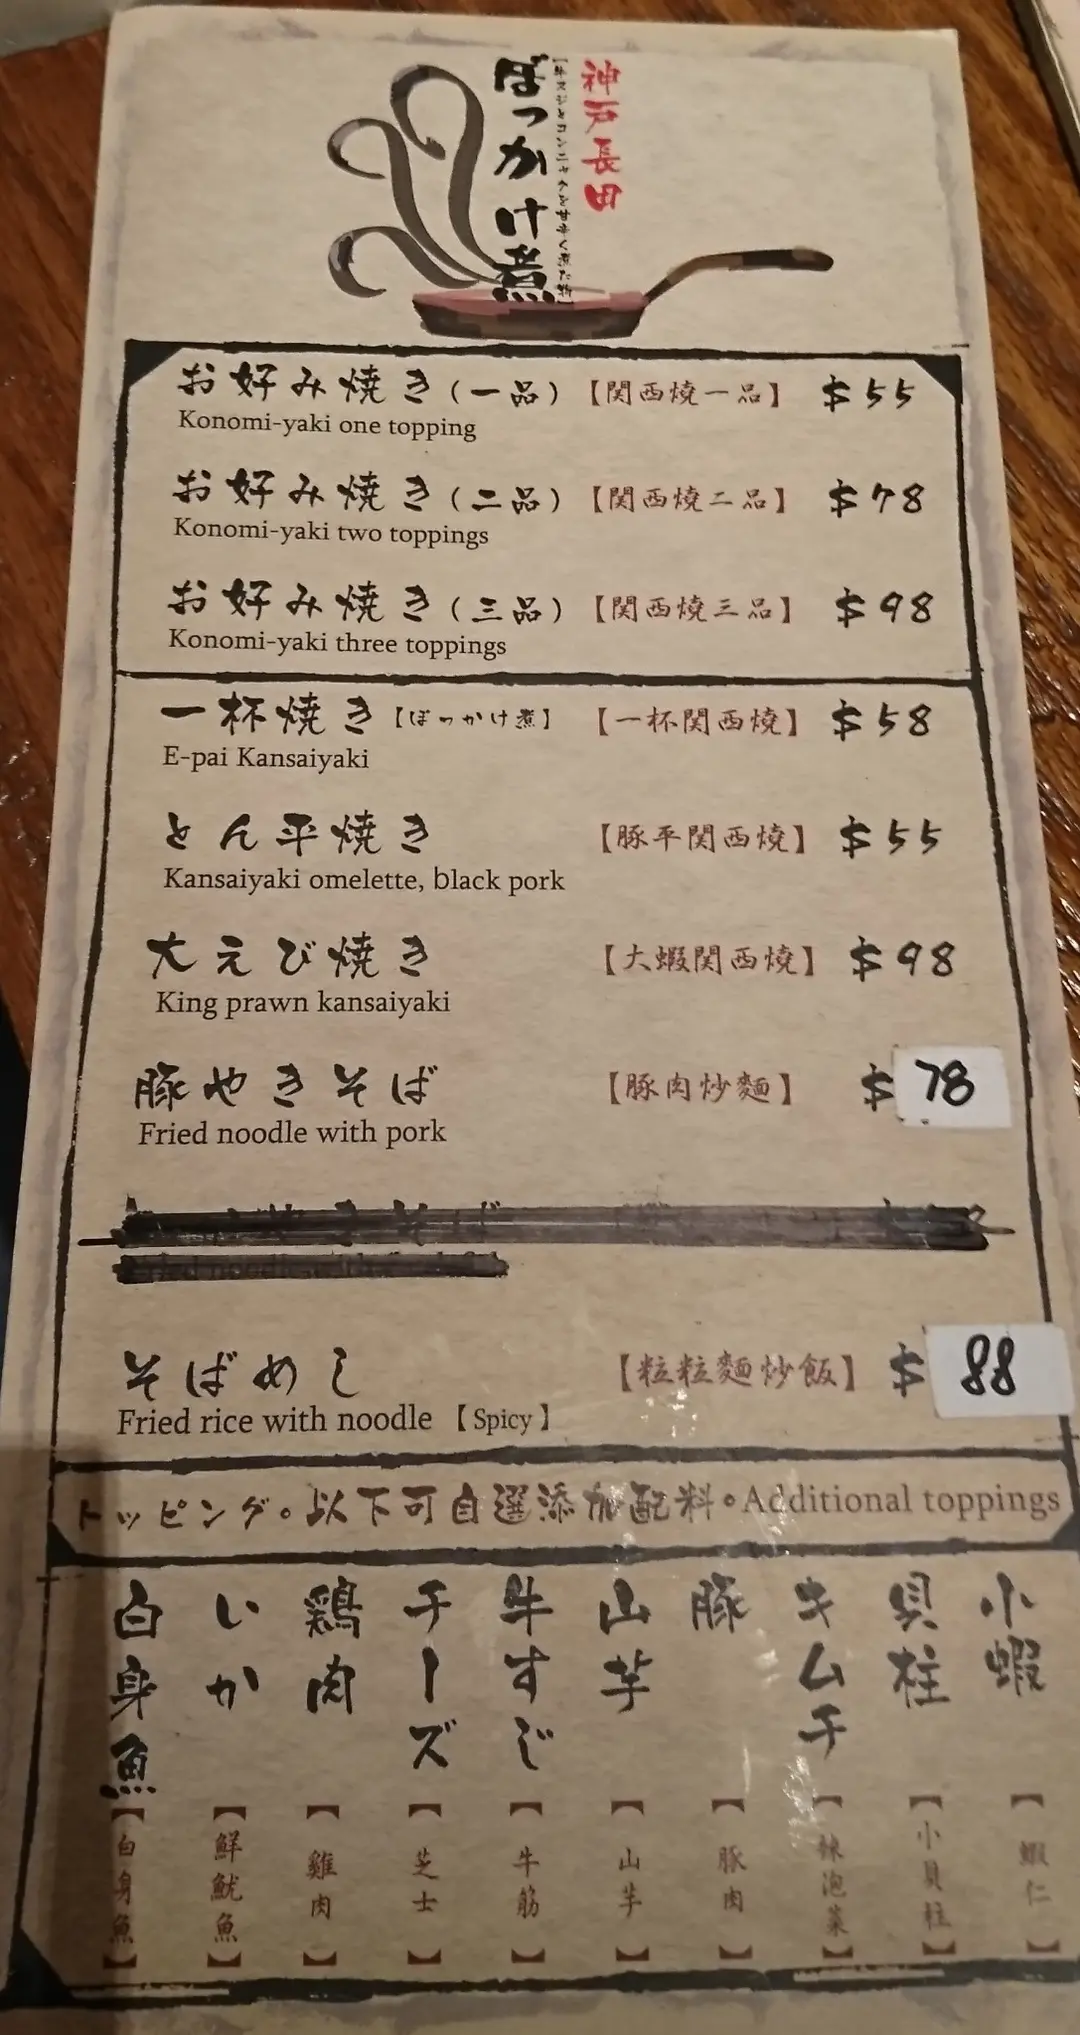 神戸長田
【牛スジとコンニャクを甘辛く煮た物】
ぼっかけ煮
お好み焼き(一品)【関西燒一品】 $55
Konomi-yaki one topping
お好み焼き(二品)【関西燒二品】 $78
Konomi-yaki two toppings
お好み焼き(三品)【関西燒三品】 $98
Konomi-yaki three toppings
一杯焼き【ぼっかけ煮】 【一杯関西燒】 $58
E-pai Kansaiyaki
とん平焼き 【豚平関西燒】 $55
Kansaiyaki omelette, black pork
大えび焼き 【大蝦関西燒】 $98
King prawn kansaiyaki
豚やきそば 【豚肉炒麵】 $78
Fried noodle with pork
そばめし 【粒粒麵炒飯】 $88
Fried rice with noodle 【Spicy】
トッピング。以下可自選添加配料。Additional toppings
小蝦【蝦仁】
貝柱【小貝柱】
キムチ【辣泡菜】
豚【豚肉】
山芋【山芋】
牛すじ【牛筋】
チーズ【芝士】
鶏肉【雞肉】
いか【鮮魷魚】
白身魚【白身魚】